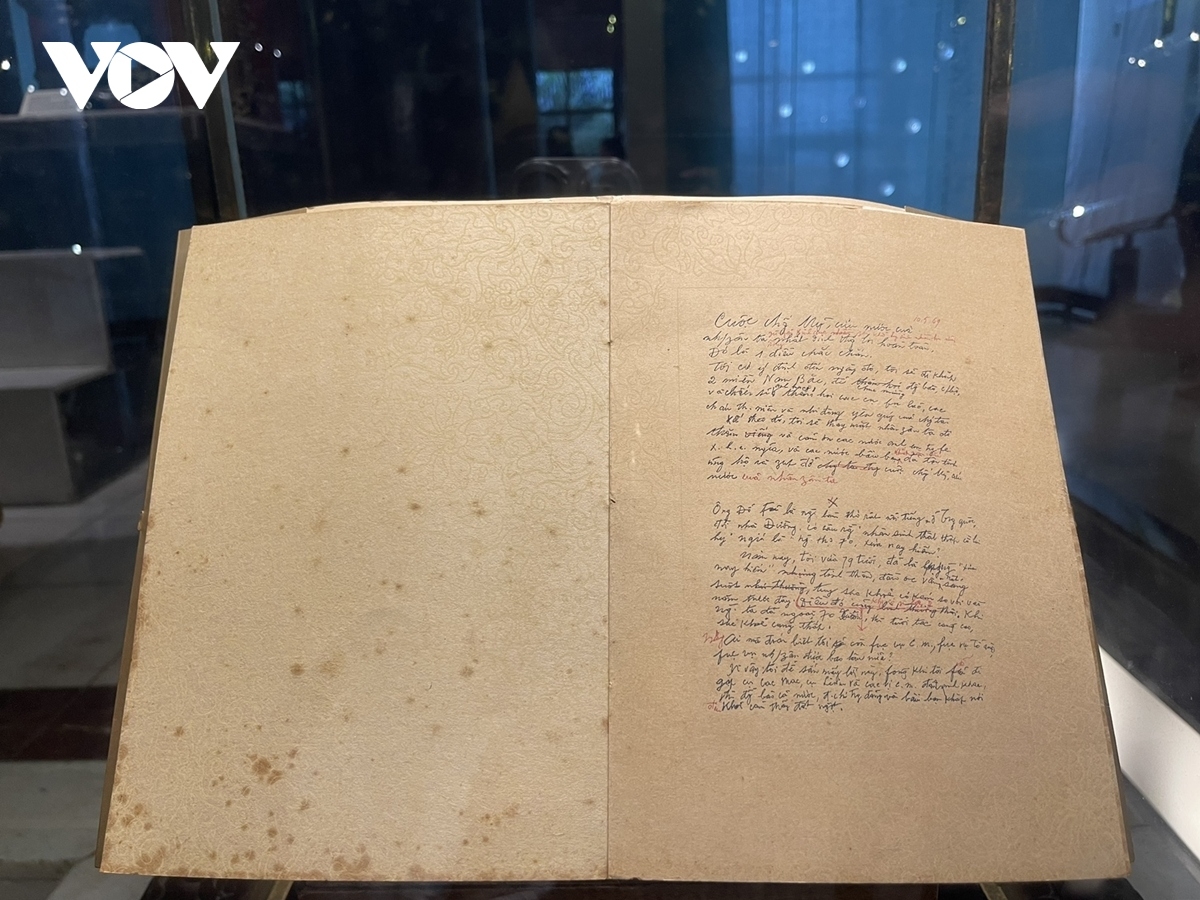 VOV
Cuộc chống Mỹ, cứu nước của
10.5.69
nh/zân ta nhất định thắng lợi hoàn toàn.
Đó là 1 điều chắc chắn.
Tôi có ý định đến ngày đó, tôi sẽ đi khắp
2 miền Nam Bắc, để đồng bào
và chiến sĩ thăm hỏi các cụ fụ lão, các
cháu th. niên và nhi đồng yêu quý của chúng ta.
Kế theo đó, tôi sẽ thay mặt nhân zân ta đi
thăm viếng và cảm ơn các nước anh em
x.h.c. nghĩa, và các nước bầu bạn đã
ủng hộ và zúp đỡ cuộc chống Mỹ, cứu
nước của nhân zân ta
X
Ông Đỗ Fủ là người làm thơ rất nổi tiếng ở Trung quốc,
đời nhà Đường, có câu rằng "nhân sinh thất thập cổ lai
hy", nghĩa là "người thọ 70, xưa nay hiếm".
Năm nay, tôi vừa 79 tuổi, đã là "xưa
nay hiếm" nhưng tinh thần, đầu óc vẫn
suốt, tuy sức khoẻ có kém so với vài
năm trước đây. Khi
người ta đã ngoài 70 xuân, thì tuổi tác càng cao,
sức khoẻ càng thấp.
Ai mà đoán biết tôi sẽ còn fục vụ c.m., fục vụ tổ quốc,
fục vụ nh/zân được bao lâu nữa?
Vì vậy tôi để sẵn mấy lời này, fòng khi tôi đi
gặp cụ Các Mác, cụ Lênin và các vị c.m. đàn anh khác,
thì đồng bào cả nước, đ.chí trong đảng và bầu bạn khắp nơi
khỏi cảm thấy đột ngột.